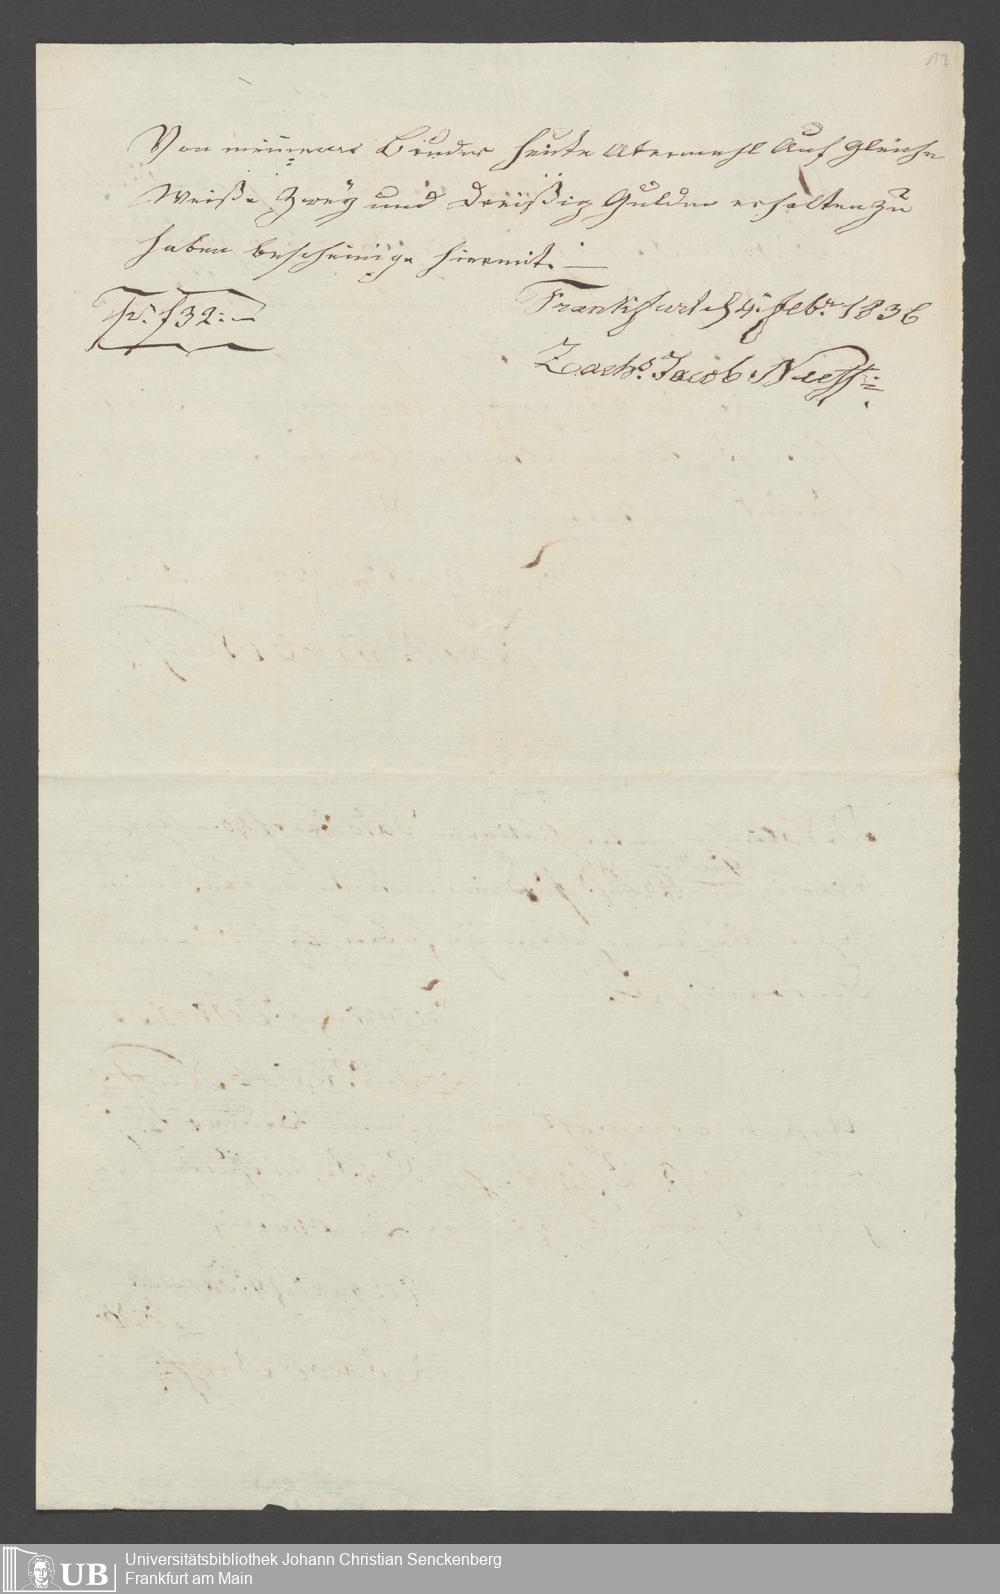 12
Von meinem Bruder heute Abermahl Auf gleiche
Weiße Zwey und Dreißig Gulden erhalten zu
haben bescheinige hiermit. —
Frankfurt d 4. Febr. 1836
Pr. f 32: —
Zachs. Jacob.
UB Universitätsbibliothek Johann Christian Senckenberg
Frankfurt am Main